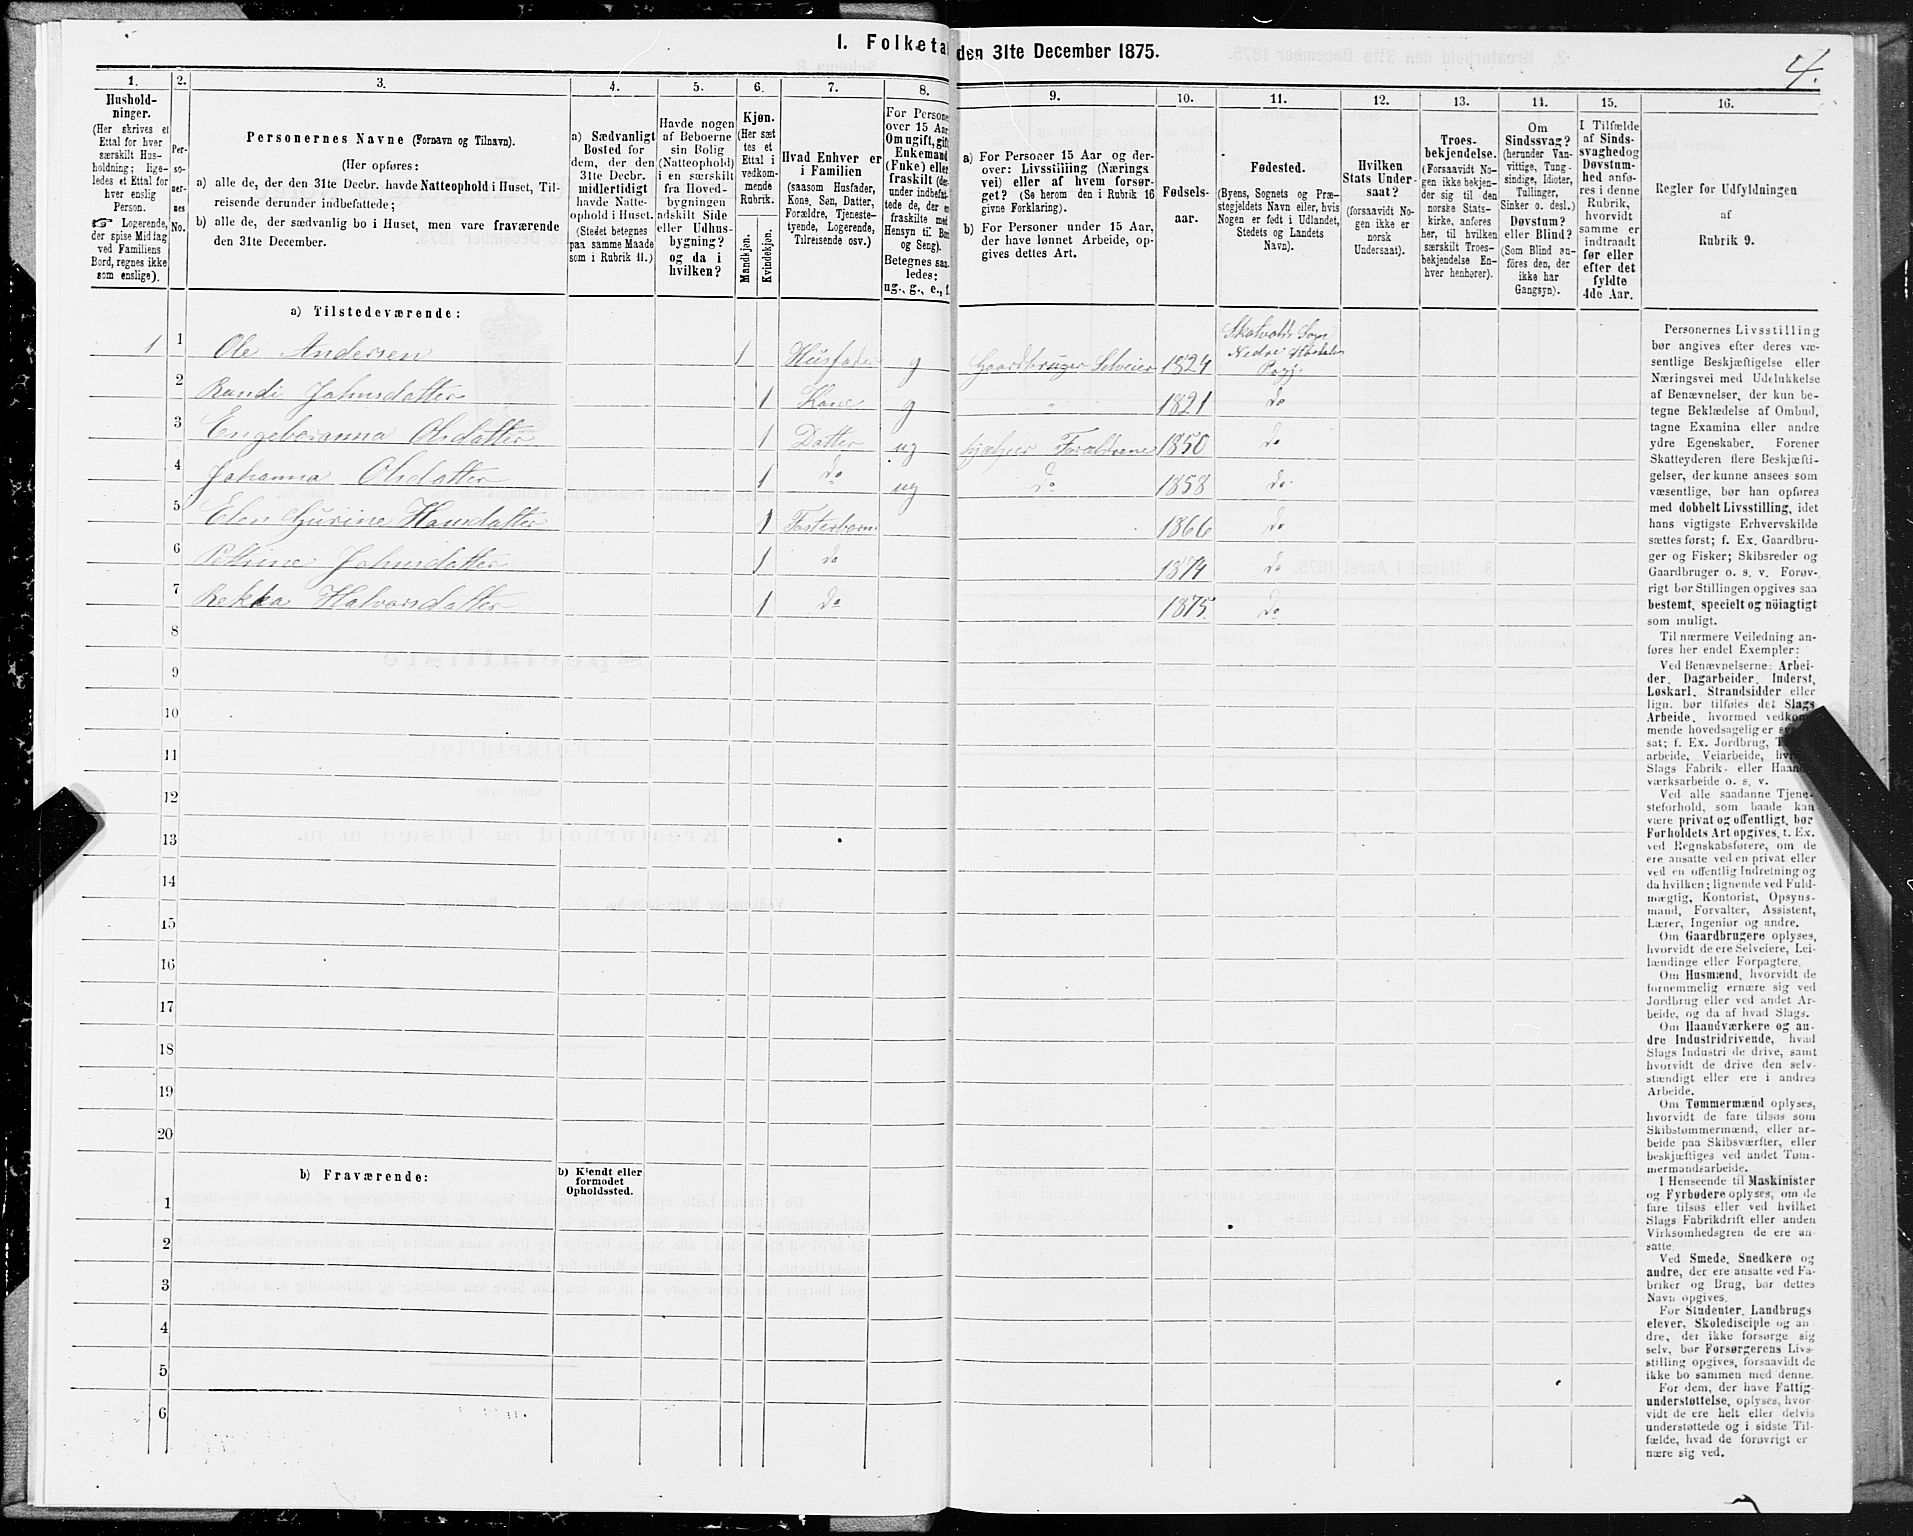 1. Folketa den 31te December 1875.
4.
1. 2. 3. 4. 5. 6. 7. 8. 9. 10. 11. 12. 13. 14. 15. 16.
Hushold-
ninger.
(Her skrives et
Ettal for hver
særskilt Hus-
holdning; lige-
ledes et Ettal for
hver enslig
Person.
☞ Logerende,
der spise Middag
ved Familiens
Bord, regnes ikke
som enslige).
Per-
so-
ner-
nes
No.
Personernes Navne (Fornavn og Tilnavn).
(Her opføres:
a) alle de, der den 31te Decbr. havde Natteophold i Huset, Til-
reisende derunder indbefattede;
b) alle de, der sædvanlig bo i Huset, men vare fraværende
den 31te December.
a) Sædvanligt
Bosted for
dem, der den
31te Decbr.
midlertidigt
havde Natte-
ophold i Huset.
(Stedet betegnes
paa samme Maade
som i Rubrik 11.)
Havde nogen
af Beboerne
sin Bolig
(Natteophold)
i en særskilt
fra Hoved-
bygningen
adskilt Side
eller Udhus-
bygning?
og da i
hvilken?
Kjøn.
(Her sæt
tes et
Ettal i
vedkom-
mende
Rubrik.
Mandkjøn.
Kvindekjøn.
Hvad Enhver er
i Familien
(saasom Husfader,
Kone, Søn, Datter,
Forældre, Tjeneste-
tyende, Logerende,
Tilreisende osv.)
For Persone
over 15 Aar
Om ugift, gift
Enkemand
(Enke) eller
fraskilt (der-
under indbefat-
tede de, der er
fraskilte med
Hensyn til Bo
og Seng).
Betegnes saa-
ledes:
ug., g., e., f.
a) For Personer 15 Aar og der-
over: Livsstiiling (Nærings
vei) eller af hvem forsør-
get? (Se herom den i Rubrik 16
givne Forklaring).
b) For Personer under 15 Aar,
der have lønnet Arbeide, op-
gives dettes Art.
Fødsels-
aar.
Fødested.
(Byens, Sognets og Præ-
stegjeldets Navn eller, hvis
Nogen er født i Udlandet,
Stedets og Landets
Navn).
Hvilken
Stats Under-
saat?
(forsaavidt No-
gen ikke er
norsk
Undersaat).
Troes-
bekjendelse.
(Forsaavidt No-
gen ikke bekjen-
der sig til den
norske Stats-
kirke, anføres
her, til hvilken
særskilt Troes-
bekjendelse En-
hver henhører).
Om
Sindssvag?
(herunder Van-
vittige, Tung-
sindige, Idioter,
Tullinger,
Sinker o. desl.)
Døvstum?
eller Blind?
(Som Blind an-
føres den, der
ikke har
Gangsyn).
I Tilfælde
af Sinds-
svaghed og
Døvstum-
hed anfø-
res i denne
Rubrik,
hvorvidt
samme er
indtraadt
før eller
efter det
fyldte
4de Aar.
Regler for Udfyldningen
af
Rubrik 9.
a) Tilstedeværende:
1 1 Ole Andersen 1 Husfader g Gaardbruger Selveier 1824 Skatvold Sogn Nedre Stordalen Pregj.
2 Randi Johnsdatter 1 Kone g " 1821 do
3 Engeberanna Olsdatter 1 Datter ug hjælper Forældrene 1850 do
4 Johanna Olsdatter 1 do ug do 1858 do
5 Elen Gurine Hansdatter 1 Fosterbarn 1866 do
6 Petrine Johnsdatter 1 do 1874 do
7 Rekka Halvorsdatter 1 do 1875 do
8
9
10
11
12
13
14
15
16
17
18
19
20
b) Fraværende:
b) Kjendt eller
formodet
Opholdssted.
1
2
3
4
5
6
Personernes Livsstilling
bør angives efter deres væ-
sentlige Beskjæftigelse eller
Næringsvei med Udelukkelse
af Benævnelser, der kun be-
tegne Beklædelse af Ombud,
tagne Examina eller andre
ydre Egenskaber. Forener
Skatteyderen flere Beskjæfti-
gelser, der kunne ansees som
væsentlige, bør han opføres
med dobbelt Livsstilling, idet
hans vigtigste Erhvervskilde
sættes først; f. Ex. Gaardbru-
ger og Fisker; Skibsreder og
Gaardbruger o. s. v. Forøv-
rigt bør Stillingen opgives saa
bestemt, specielt og nöiagtigt
som muligt.
Til nærmere Veiledning an-
føres her endel Exempler:
Ved Benævnelserne: Arbei-
der, Dagarbeider, Inderst,
Løskarl, Strandsidder eller
lign. bør tilføies det Slags
Arbeide, hvormed vedkom-
mende hovedsagelig er
sat; f. Ex. Jordbrug,
arbeide, Veiarbeide,
Slags Fabrik- eller Haand-
værksarbeide o. s. v.
Ved alle saadanne Tjene-
steforhold, som baade kan
være privat og offentligt, bør
Forholdets Art opgives, t. Ex.
ved Regnskabsførere, om de
ere ansatte ved en privat eller
ved en offentlig Indretning og
da hvilken; lignende ved Fuld-
mægtig, Kontorist, Opsyns-
mand, Forvalter, Assistent,
Lærer, Ingeniør og andre.
Om Gaardbrugere oplyses,
hvorvidt de ere Selveiere, Lei-
lændinge eller Forpagtere.
Om Husmænd, hvorvidt de
fornemmelig ernære sig ved
Jordbrug eller ved andet Ar-
beide, og da af hvad Slags.
Om Haandværkere og an-
dre Industridrivende, hvad
Slags Industri de drive, samt
hvorvidt de drive den selv-
stændigt eller ere i andres
Arbeide.
Om Tømmermænd oplyses,
hvorvidt de fare tilsøs som
Skibstømmermænd, eller ar-
beide paa Skibsværfter, eller
beskjæftiges ved andet Tøm-
mermandsarbeide.
I Henseende til Maskinister
og Fyrbødere oplyses, om de
fare tilsøs eller ved hvilket
Slags Fabrikdrift eller anden
Virksomhedsgren de ere an-
satte.
Ved Smede, Snedkere og
andre, der ere ansatte ved Fa-
briker og Brug, bør dettes
Navn opgives.
For Studenter, Landbrugs
elever, Skoledisciple og an-
dre, der ikke forsørge sig
selv, bør Forsørgerens Livs-
stilling opgives, forsaavidt de
ikke bo sammen med denne.
For dem, der have Fattig-
understøttelse, oplyses, hvor-
vidt de ere helt eller delvis
understøttede og i sidste Til-
fælde, hvad de forøvrigt er
nære sig ved.